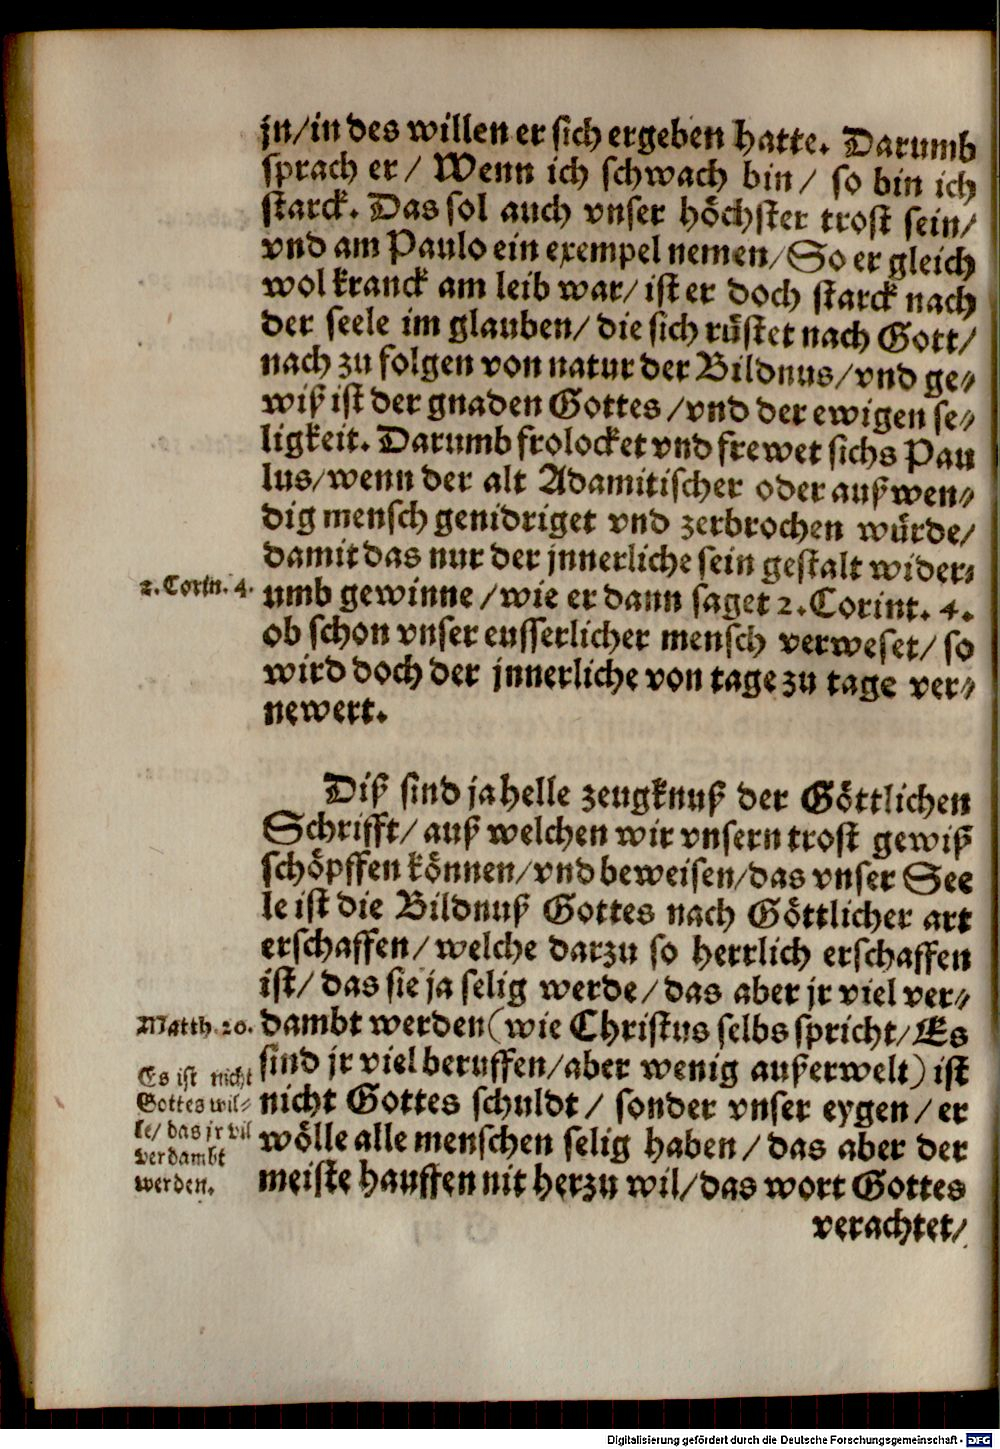 jn/in des willen er sich ergeben hatte. Darumb
sprach er/ Wenn ich schwach bin/ so bin ich
starck. Das sol auch vnser höchster trost sein/
vnd am Paulo ein exempel nemen/So er gleich
wol kranck am leib war/ ist er doch starck nach
der seele im glauben/ die sich rüstet nach Gott/
nach zu folgen von natur der Bildnus/vnd ge⸗
wiß ist der gnaden Gottes /vnd der ewigen se⸗
ligkeit. Darumb frolocket vnd frewet sichs Pau
lus/wenn der alt Adamitischer oder außwen⸗
dig mensch genidriget vnd zerbrochen würde/
damit das nur der jnnerliche sein gestalt wider⸗
2. Corin. 4.
umb gewinne /wie er dann saget 2. Corint. 4.
ob schon vnser eusserlicher mensch verweset/ so
wird doch der jnnerliche von tage zu tage ver⸗
newert.
Diß sind ja helle zeugknuß der Göttlichen
Schrifft/ auß welchen wir vnsern trost gewiß
schöpffen können/vnd beweisen/das vnser See
le ist die Bildnuß Gottes nach Göttlicher art
erschaffen/ welche darzu so herrlich erschaffen
ist/ das sie ja selig werde/das aber jr viel ver⸗
Matth. 20.
dambt werden(wie Christus selbs spricht/Es
sind jr viel beruffen/aber wenig außerwelt) ist
nicht Gottes schuldt / sonder vnser eygen/ er
wölle alle menschen selig haben / das aber der
meiste hauffen nit herzu wil/das wort Gottes
Es ist nicht
Gottes wil⸗
le/ das jr vil
verdambt
werden.
verachtet/
Digitalisierung gefördert durch die Deutsche Forschungsgemeinschaft - DFG